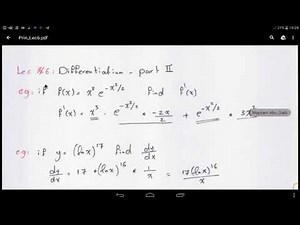 Prin_Lec6.pdf
Lec #6: Differentiation - part II
eg: if f(x) = x³ e^(-x²/2) find f'(x)
f'(x) = x³ · e^(-x²/2) * -2x/2 + e^(-x²/2) * 3x²
eg: if y = (ln x)^17 find dy/dx
dy/dx = 17 * (ln x)^16 * 1/x = 17(ln x)^16/x